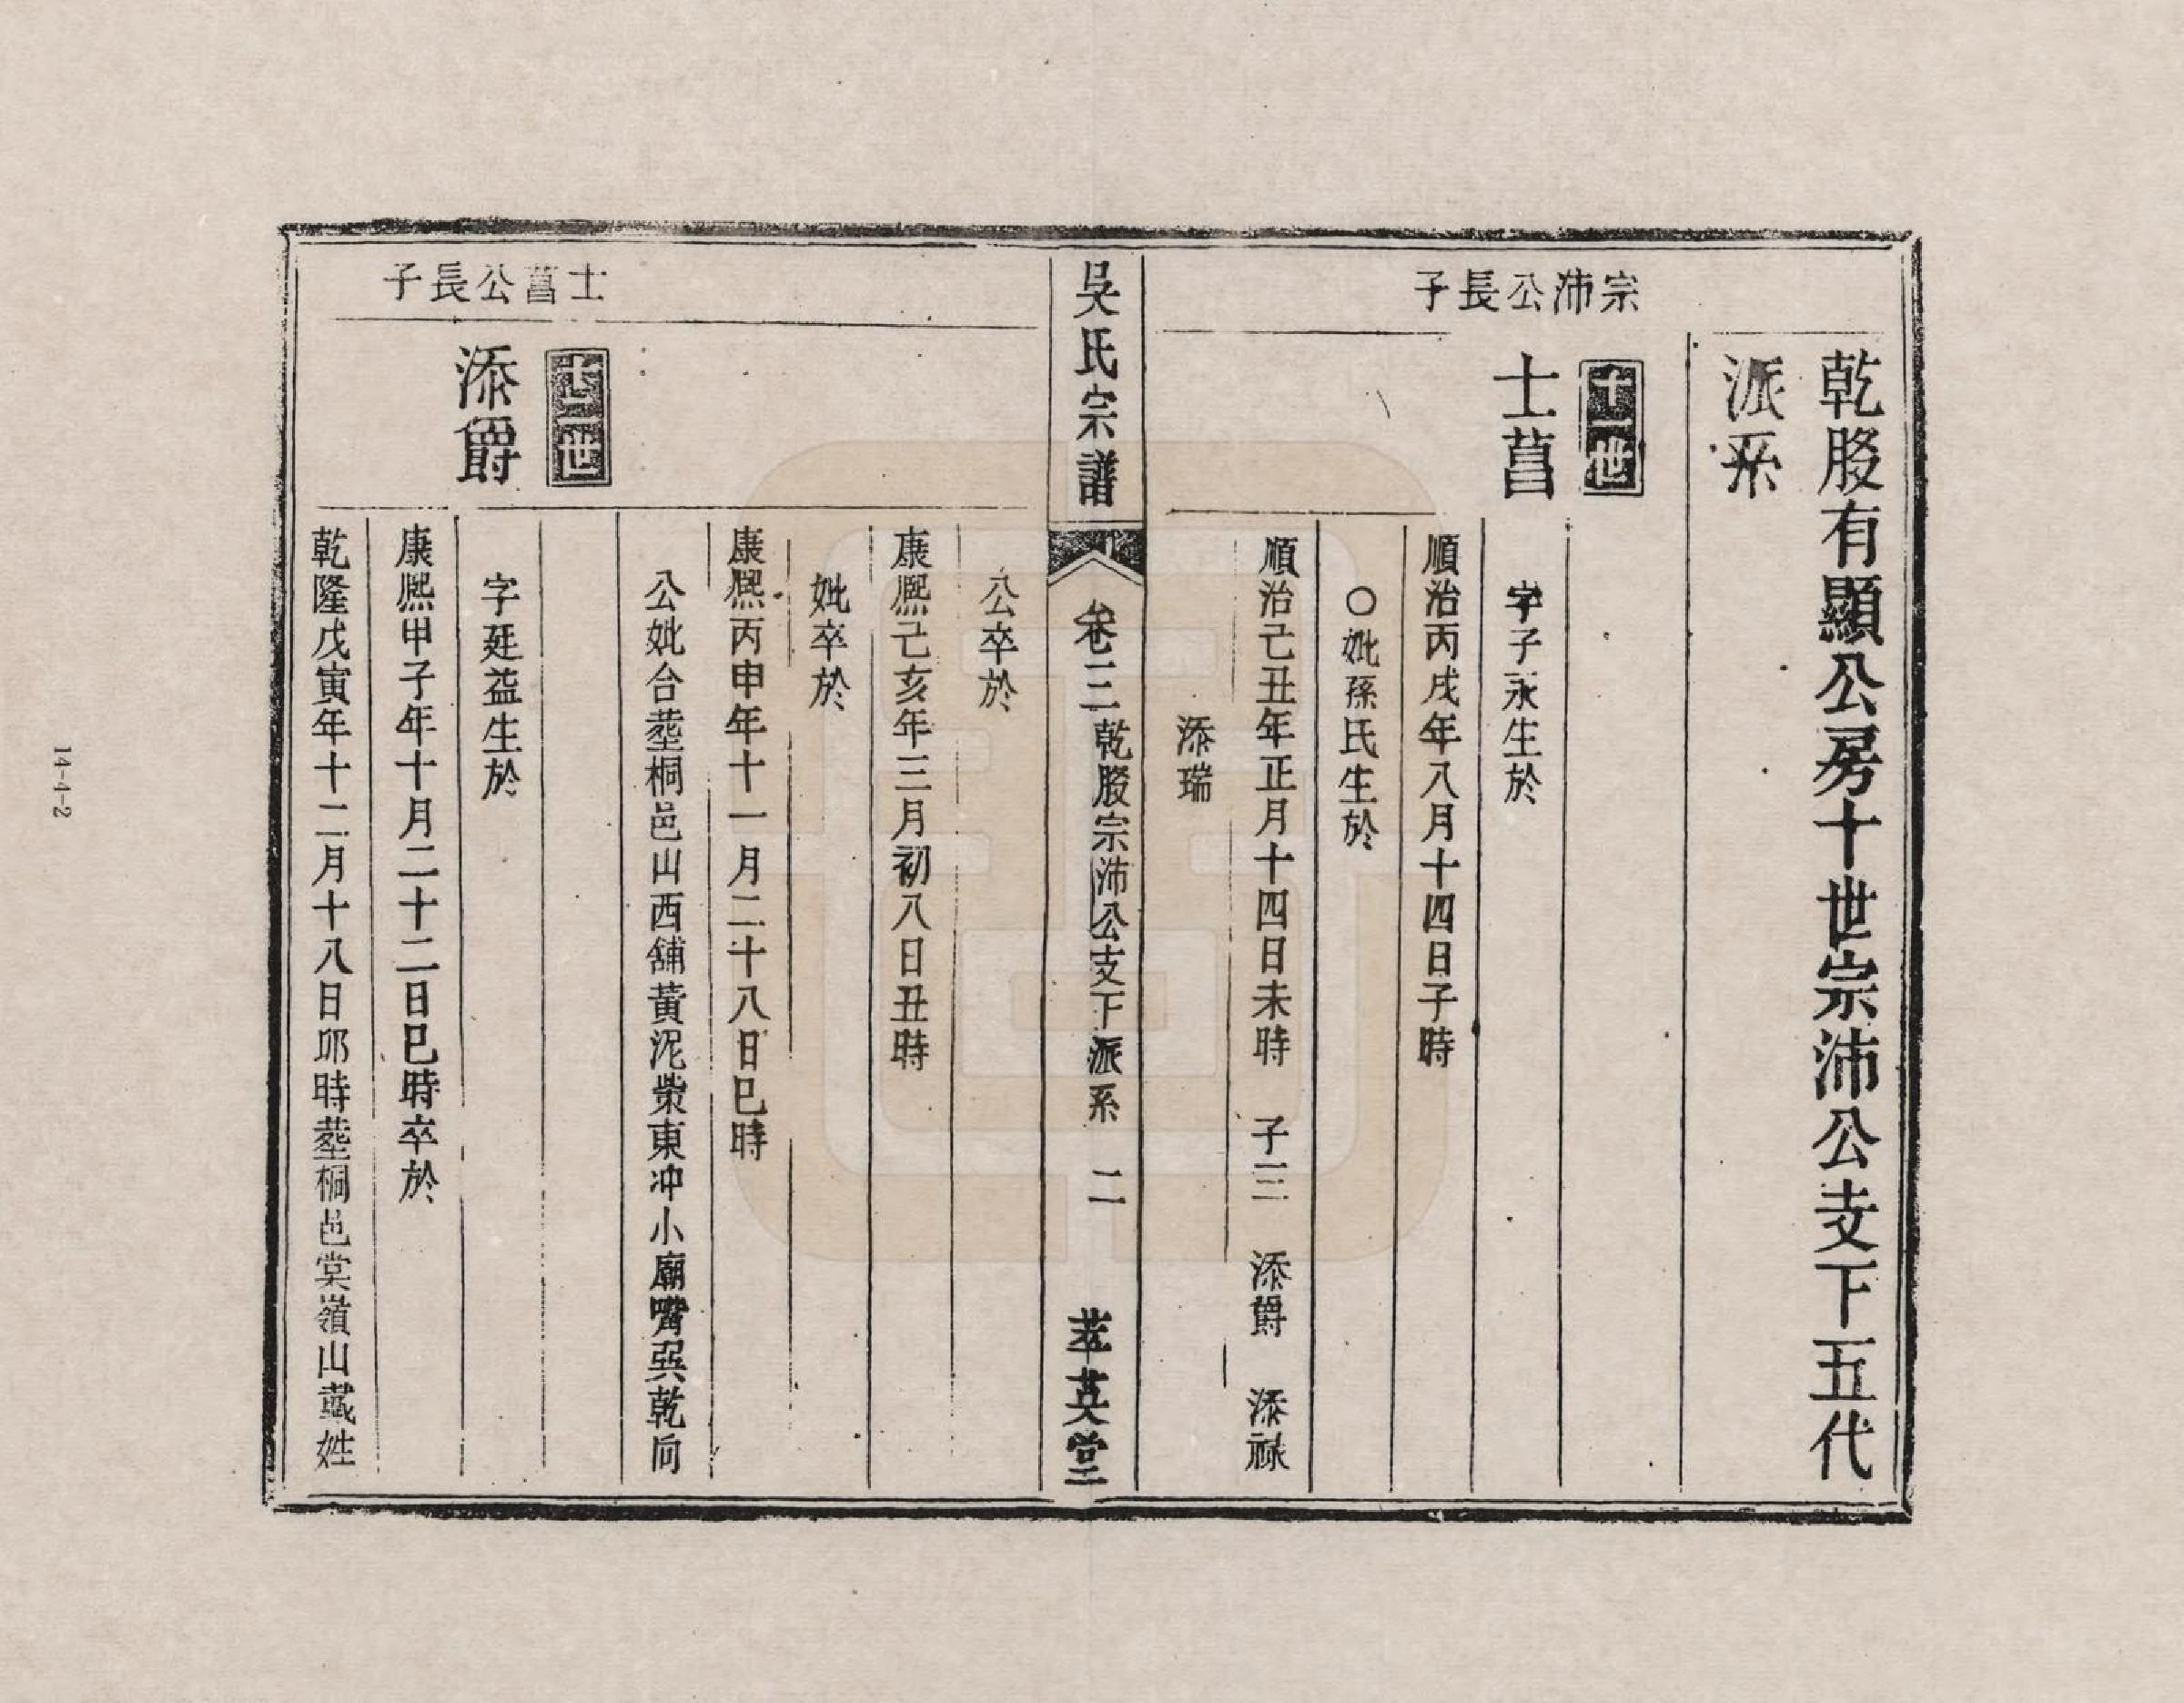 乾股有顯公房十世宗沛公支下五代
派系
宗沛公長子
十一世
士菖
字子永生於
順治丙戌年八月十四日子時
○妣孫氏生於
順治己丑年正月十四日未時 子三 添爵 添祿
添瑞
吳氏宗譜 卷三 乾股宗沛公支下派系 二 萃英堂
公卒於
康熙己亥年三月初八日丑時
妣卒於
康熙丙申年十一月二十八日巳時
公妣合塟桐邑山西舖黃泥柴東冲小廟嘴巽乾向
士菖公長子
十二世
添爵
字廷益生於
康熙甲子年十月二十二日巳時卒於
乾隆戊寅年十二月十八日卯時塟桐邑棠嶺山戴姓
14-4-2